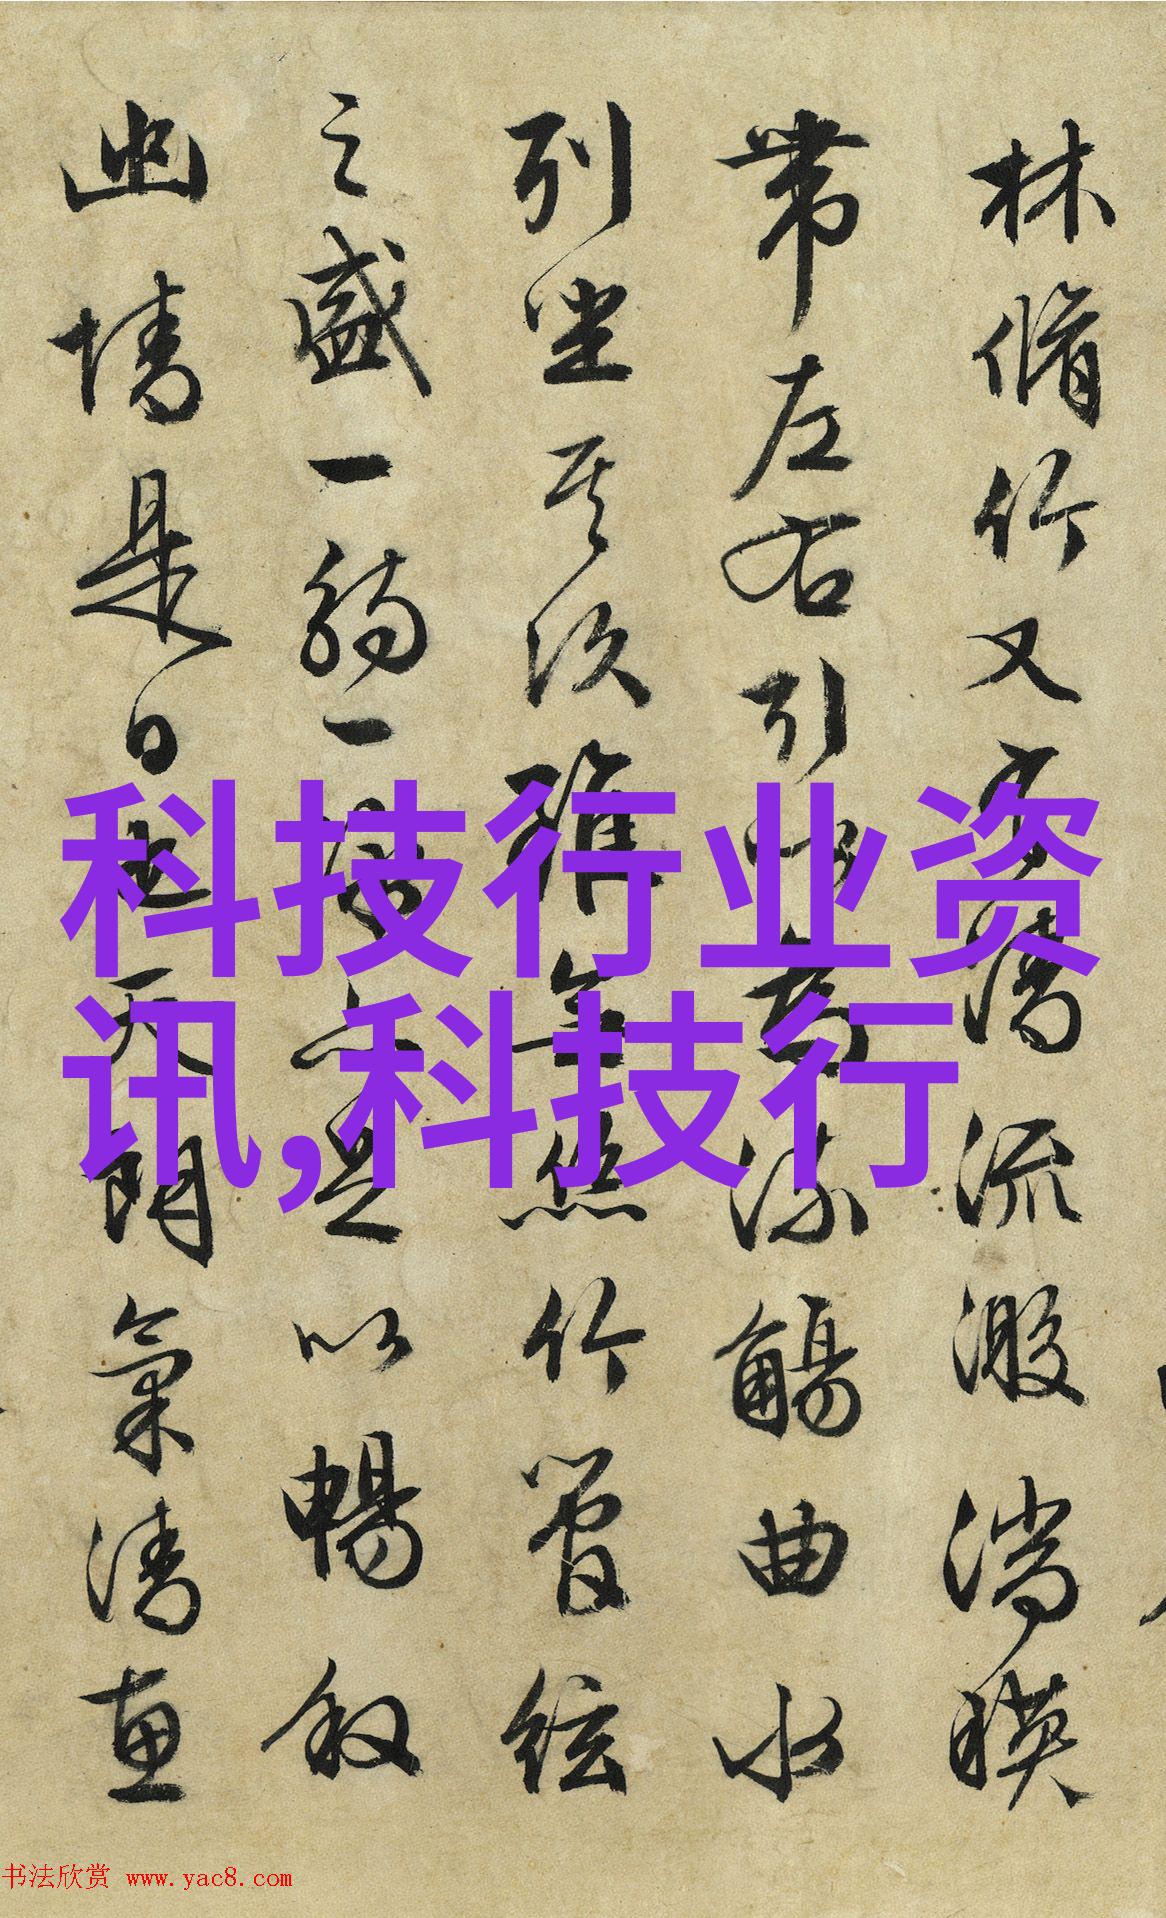 林脩竹又有清流激湍暎
帶左右引以為流觴曲水
列坐其次雖無絲竹管絃
之盛一觴一詠亦足以暢叙
幽情是日也天朗氣清惠
科技行业资
讯,科技行
书法欣赏 www.yac8.com